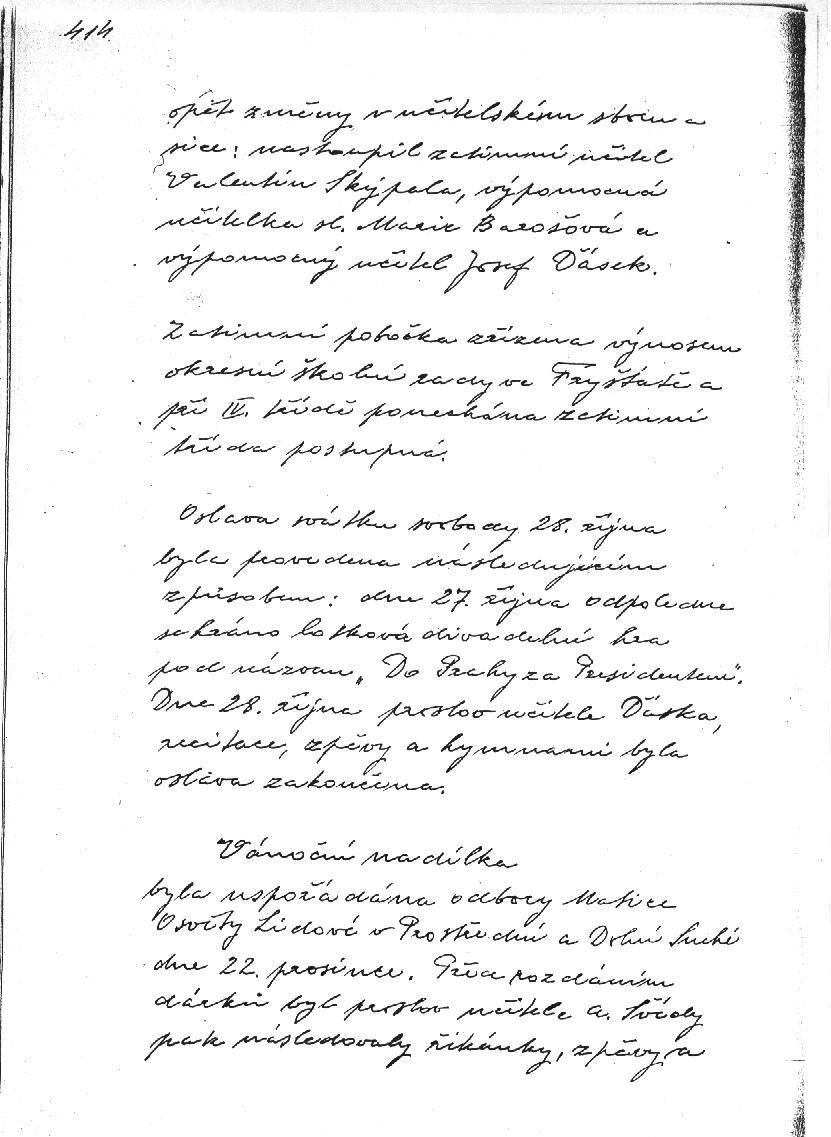 414
opět změny v učitelském sboru a
sice: nastoupil zatimní učitel
Valentin Skýpala, výpomocná
učitelka sl. Marie Barošová a
výpomocný učitel Josef Ďásek.
Zatimní pobočka zřízena výnosem
okresní školní rady ve Fryštátě a
při IV. třídě ponechána zatimní
třída postupná.
Oslava svátku svobody 28. října
byla provedena následujícím
způsobem: dne 27. října odpoledne
sehráno loutková divadelní hra
pod názvem „Do Prahy za Presidentem".
Dne 28. října proslov učitele Ďáska,
recitace, zpěvy a hymnami byla
oslava zakončena.
Vánoční nadílka
byla uspořádána odbory Matice
Osvěty Lidové v Prostřední a Dolní Suché
dne 22. prosince. Před rozdáním
dárků byl proslov učitele A.
pak následovaly říkánky, zpěvy a